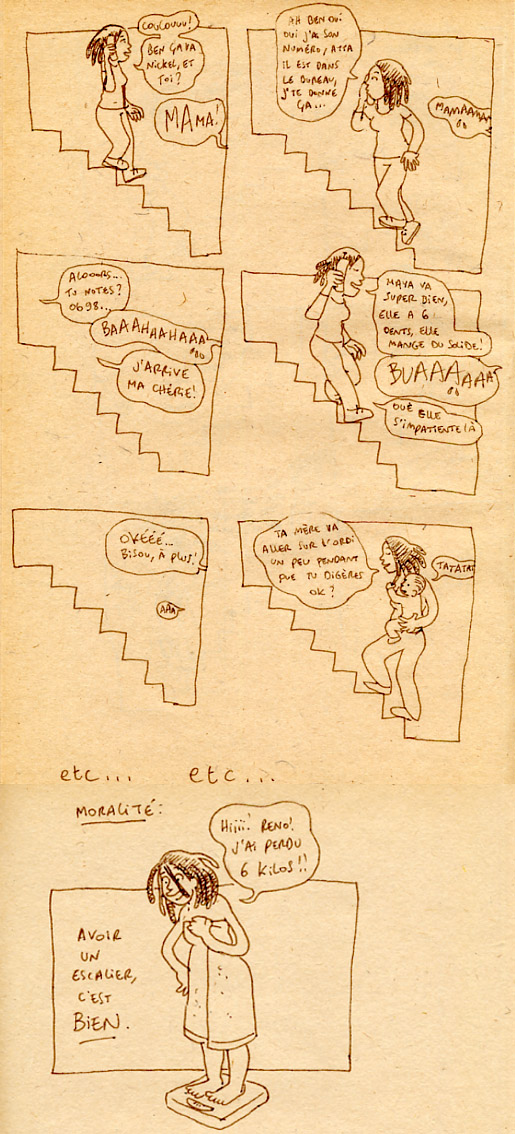 COUCOUUU!
BEN ÇA VA
NICKEL, ET
TOI?
MAMA!
AH BEN OUI
OUI J'AI SON
NUMÉRO, ATTA
IL EST DANS
LE BUREAU,
J'TE DONNE
ÇA...
MAMAAAAAN
ALOOORS...
TU NOTES?
0698...
BAAAHAAHAAA
J'ARRIVE
MA CHÉRIE!
MAYA VA
SUPER BIEN,
ELLE A 6
DENTS, ELLE
MANGE DU SOLIDE!
BUAAAAAAA
OUÉ ELLE
S'IMPATIENTE LÀ
OKÉÉÉ...
BISOU, À PLUS!
AAA
TA MÈRE VA
ALLER SUR L'ORDI
UN PEU PENDANT
QUE TU DIGÈRES
OK?
TATATAT
etc... etc...
MORALITÉ:
Hiiii! RENO!
J'AI PERDU
6 KILOS!!
AVOIR
UN
ESCALIER,
C'EST
BIEN.